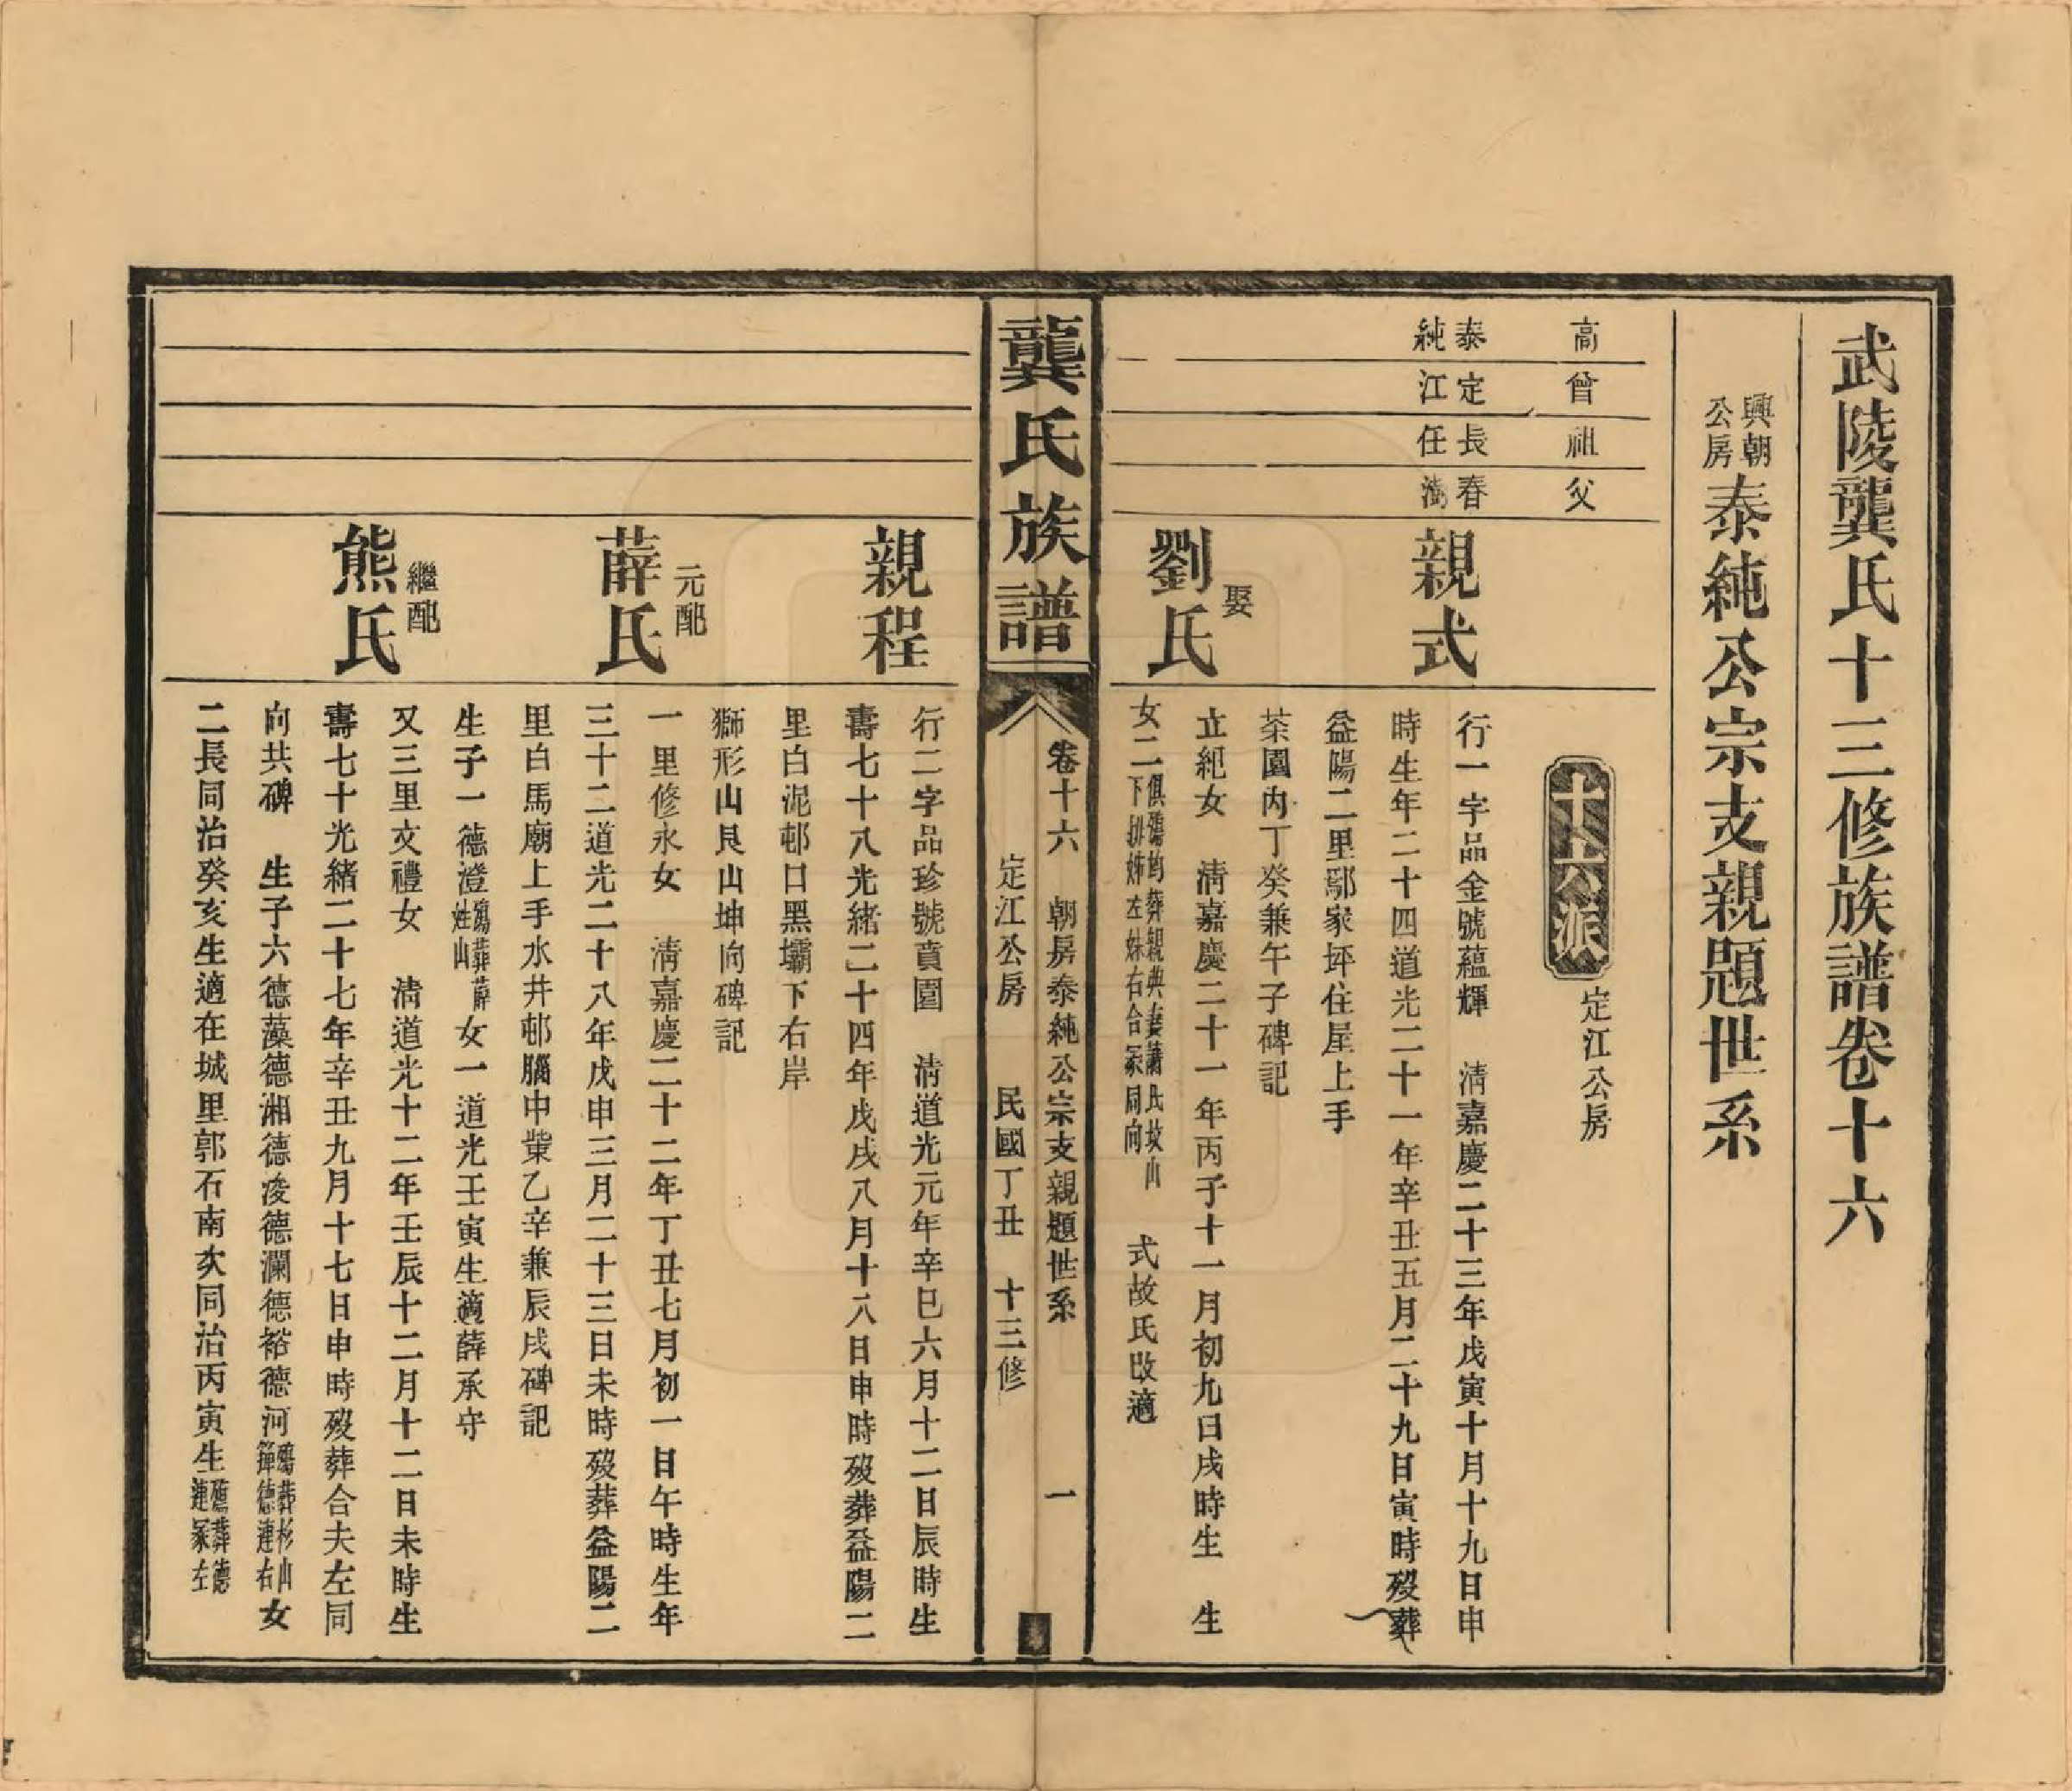 武陵龔氏十三修族譜卷十六
興朝公房泰純公宗支親題世系
高 曾 祖 父
十六派 定江公房
泰純 定江 長任 春澍
親式
行一字品金號蘊輝 清嘉慶二十三年戊寅十月十九日申
時生年二十四道光二十一年辛丑五月二十九日寅時歿葬
益陽二里鄢家坪住屋上手
茶園內丁癸兼午子碑記
娶劉氏
立紀女 清嘉慶二十一年丙子十一月初九日戌時生 生
女二俱殤均葬親典妻蕭氏坟山下排姊左妹右合冢同向 式故氏改適
龔氏族譜
卷十六 朝房泰純公宗支親題世系 一
定江公房 民國丁丑 十三修
親程
行二字品珍號賁園 清道光元年辛巳六月十二日辰時生
壽七十八光緒二十四年戊戌八月十八日申時歿葬益陽二
里白泥邨口黑壩下右岸
獅形山艮山坤向碑記
元配薛氏
一里修永女 清嘉慶二十二年丁丑七月初一日午時生年
三十二道光二十八年戊申三月二十三日未時歿葬益陽二
里白馬廟上手水井邨腦中柴乙辛兼辰戌碑記
生子一德澄殤葬薛姓山女一道光壬寅生適薛承守
繼配熊氏
又三里文禮女 清道光十二年壬辰十二月十二日未時生
壽七十光緒二十七年辛丑九月十七日申時歿葬合夫左同
向共碑 生子六德藻德湘德凌德瀾德裕德河殤葬杉山德漣右女
二長同治癸亥生適在城里郭石南次同治丙寅生殤葬德漣冢左